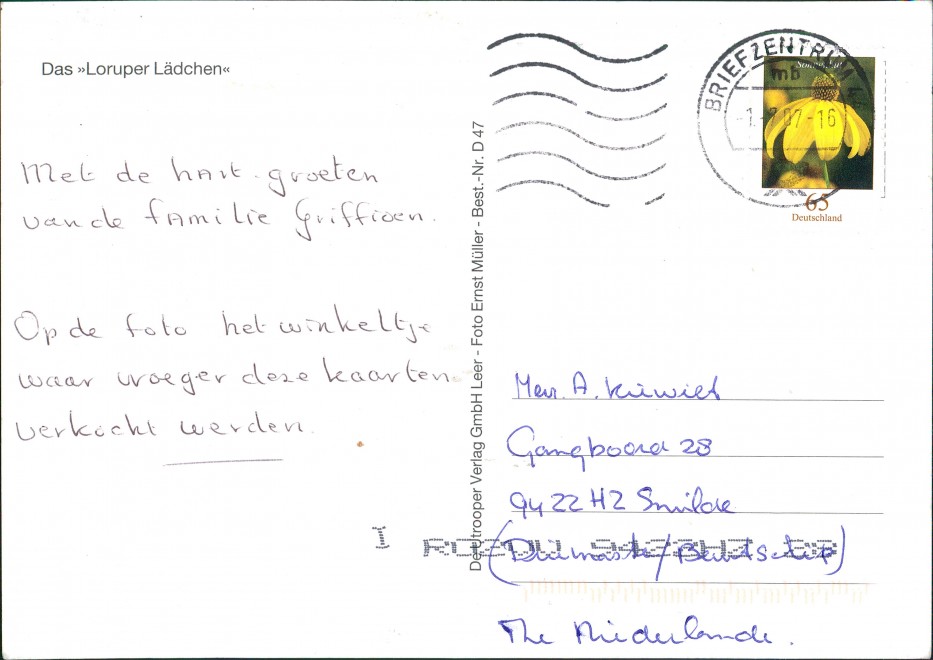 Das »Loruper Lädchen«
Met de hart. groeten
van de familie Griffioen.
Op de foto het winkeltje
waar vroeger deze kaarten
verkocht werden.
Deutrooper Verlag GmbH Leer - Foto Ernst Müller - Best.-Nr. D 47
BRIEFZENTRUM
mb
-16
65
Deutschland
Mevr. A.
Gangboord 28
9422 HZ Smilde
The Niederlande.